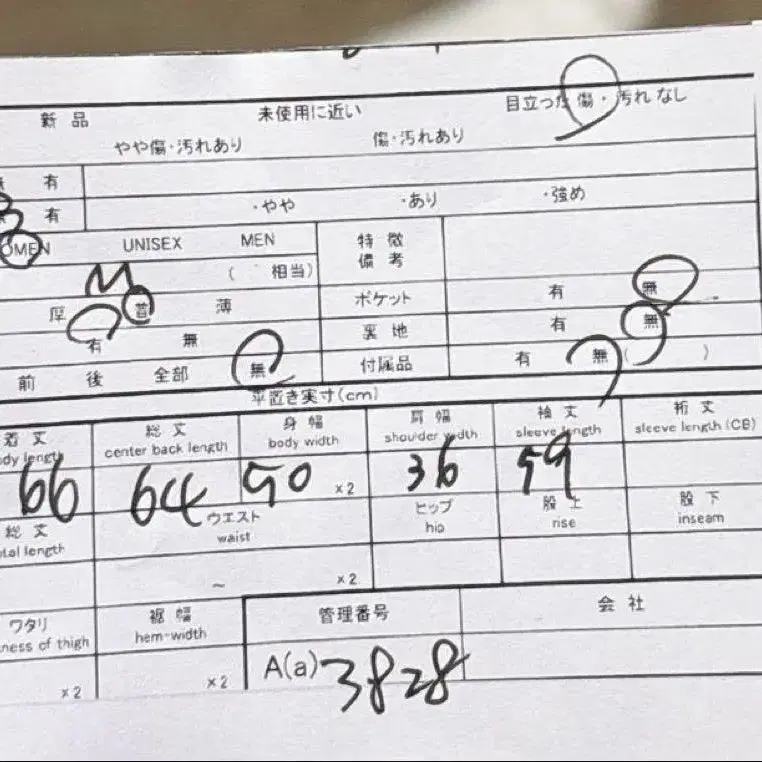 新品 未使用に近い 目立った傷・汚れなし
やや傷・汚れあり 傷・汚れあり
無 有
有 ・やや ・あり ・強め
WOMEN UNISEX MEN 特徴
備考
M ( 相当)
厚 普 薄 ポケット 有 無
有 無 裏地 有 無
前 後 全部 無 付属品 有 無 ( )
平置き実寸(cm)
着丈 総丈 身幅 肩幅 袖丈 裄丈
body length center back length body width shoulder width sleeve length sleeve length (CB)
66 64 50 ×2 36 59
総丈 ウエスト ヒップ 股上 股下
total length waist hip rise inseam
～ ×2
ワタリ 裾幅 管理番号 会社
ness of thigh hem-width
×2 ×2 A(a) 3828